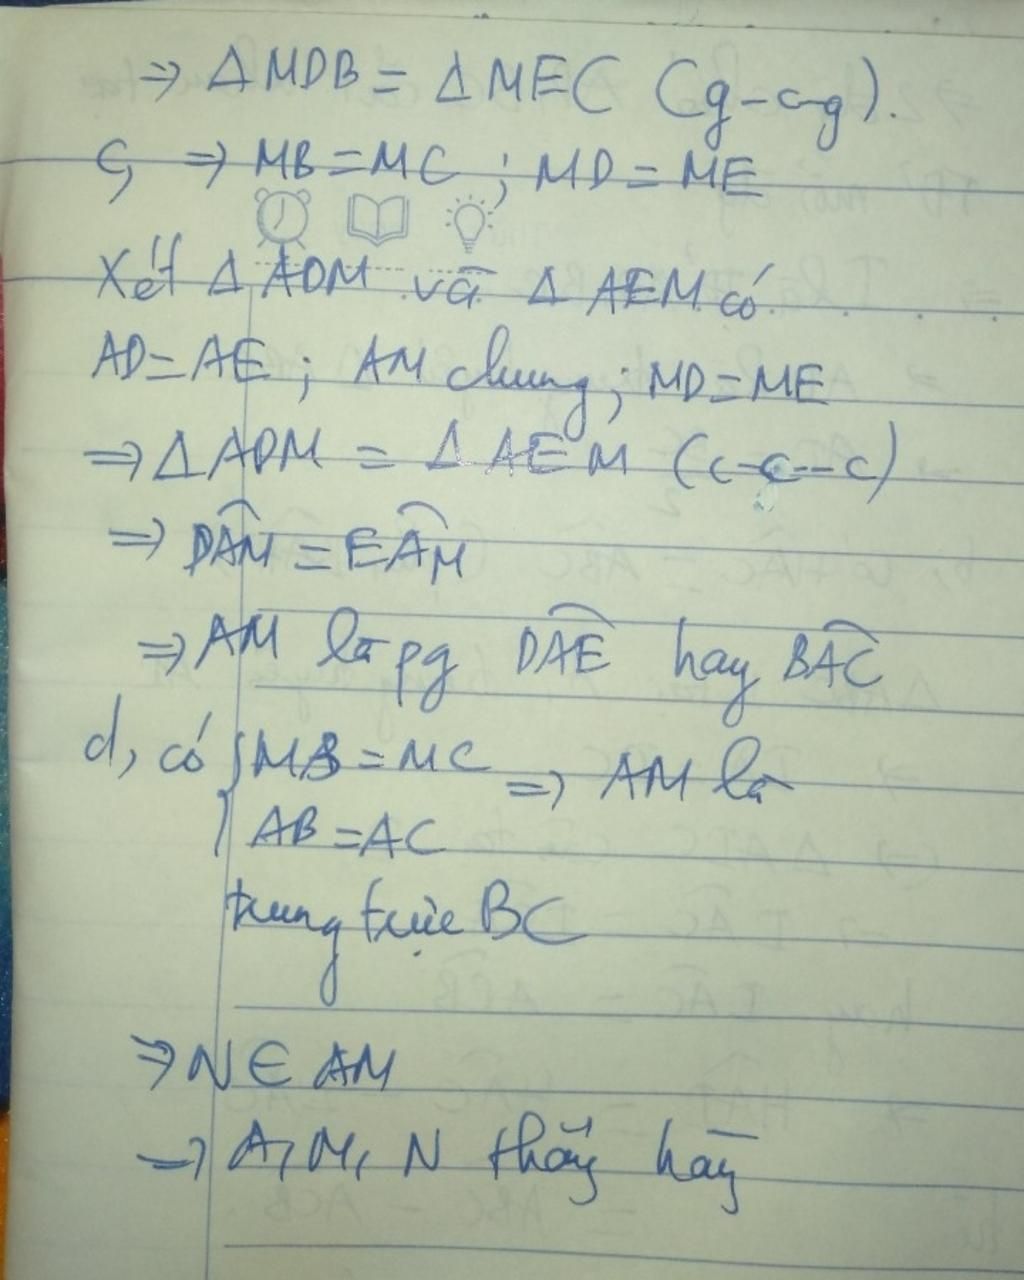 => Δ MDB = Δ MEC (g-c-g).
c, => MB = MC ; MD = ME
Xét Δ ADM và Δ AEM có
AD = AE ; AM chung ; MD = ME
=> Δ ADM = Δ AEM (c-c-c)
=> DÂM = EÂM
=> AM là pg DÂE hay BÂC
d, có { MB = MC => AM là
AB = AC
trung trực BC
=> N ∈ AM
=> A, M, N thẳng hàng